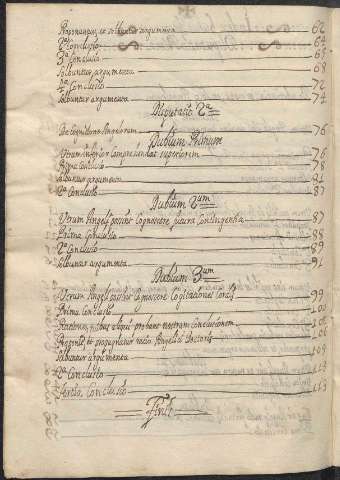 Proponuntur et solbuntur argumenta 62
2ª Conclusio 62
3ª Conclusio 65
Solbuntur argumenta 68
4ª Conclusio 72
Solbuntur argumenta 74
Disputatio 2ª
De Cognitione Angelorum 76
Dubium Primum
Utrum inferior Comprehendat superiorem 76
Prima Conclusio 78
Solbuntur argumenta
2ª Conclusio 87
Dubium 2um
Utrum Angeli possint Cognoscere futura Contingentia 87
Prima Conclusio 88
2ª Conclusio 89
Solbuntur argumenta 91
Dubium 3um
Utrum Angeli possint Cognoscere Cogitationes Cordis 99
Prima Conclusio
Rationes, quibus aliqui probant nostram Conclusionem
Proponitur et propugnatur ratio Angelici Doctoris
Solbuntur argumenta 109
2ª Conclusio 113
Tertia Conclusio 113
Finis